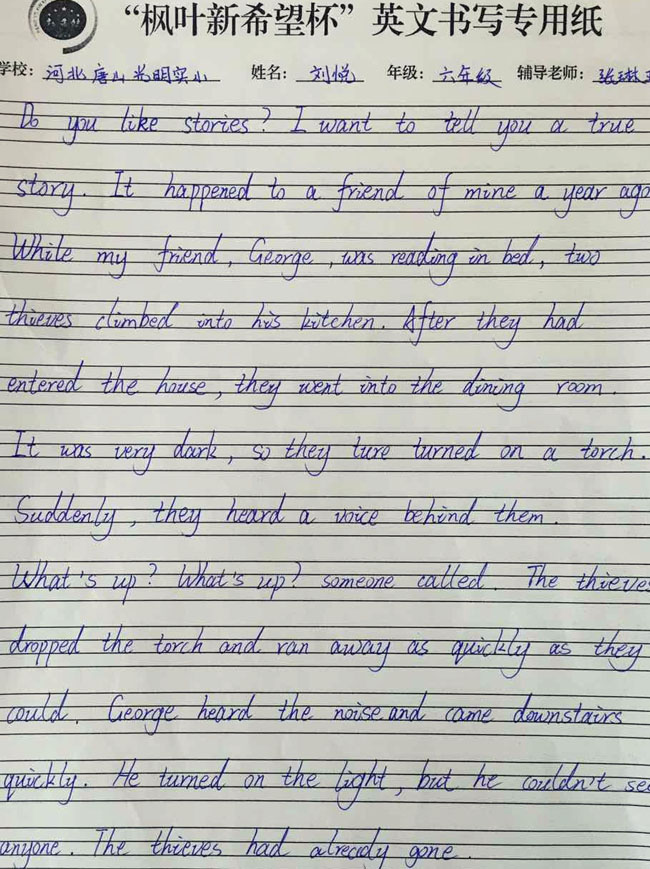 “枫叶新希望杯”英文书写专用纸
学校：河北唐山光明实小 姓名：刘悦 年级：六年级 辅导老师：张琳
Do you like stories? I want to tell you a true
story. It happened to a friend of mine a year ago
While my friend, George, was reading in bed, two
thieves climbed into his kitchen. After they had
entered the house, they went into the dining room.
It was very dark, so they ture turned on a torch.
Suddenly, they heard a voice behind them.
What's up? What's up? someone called. The thieves
dropped the torch and ran away as quickly as they
could. George heard the noise and came downstairs
quickly. He turned on the light, but he couldn't see
anyone. The thieves had already gone.